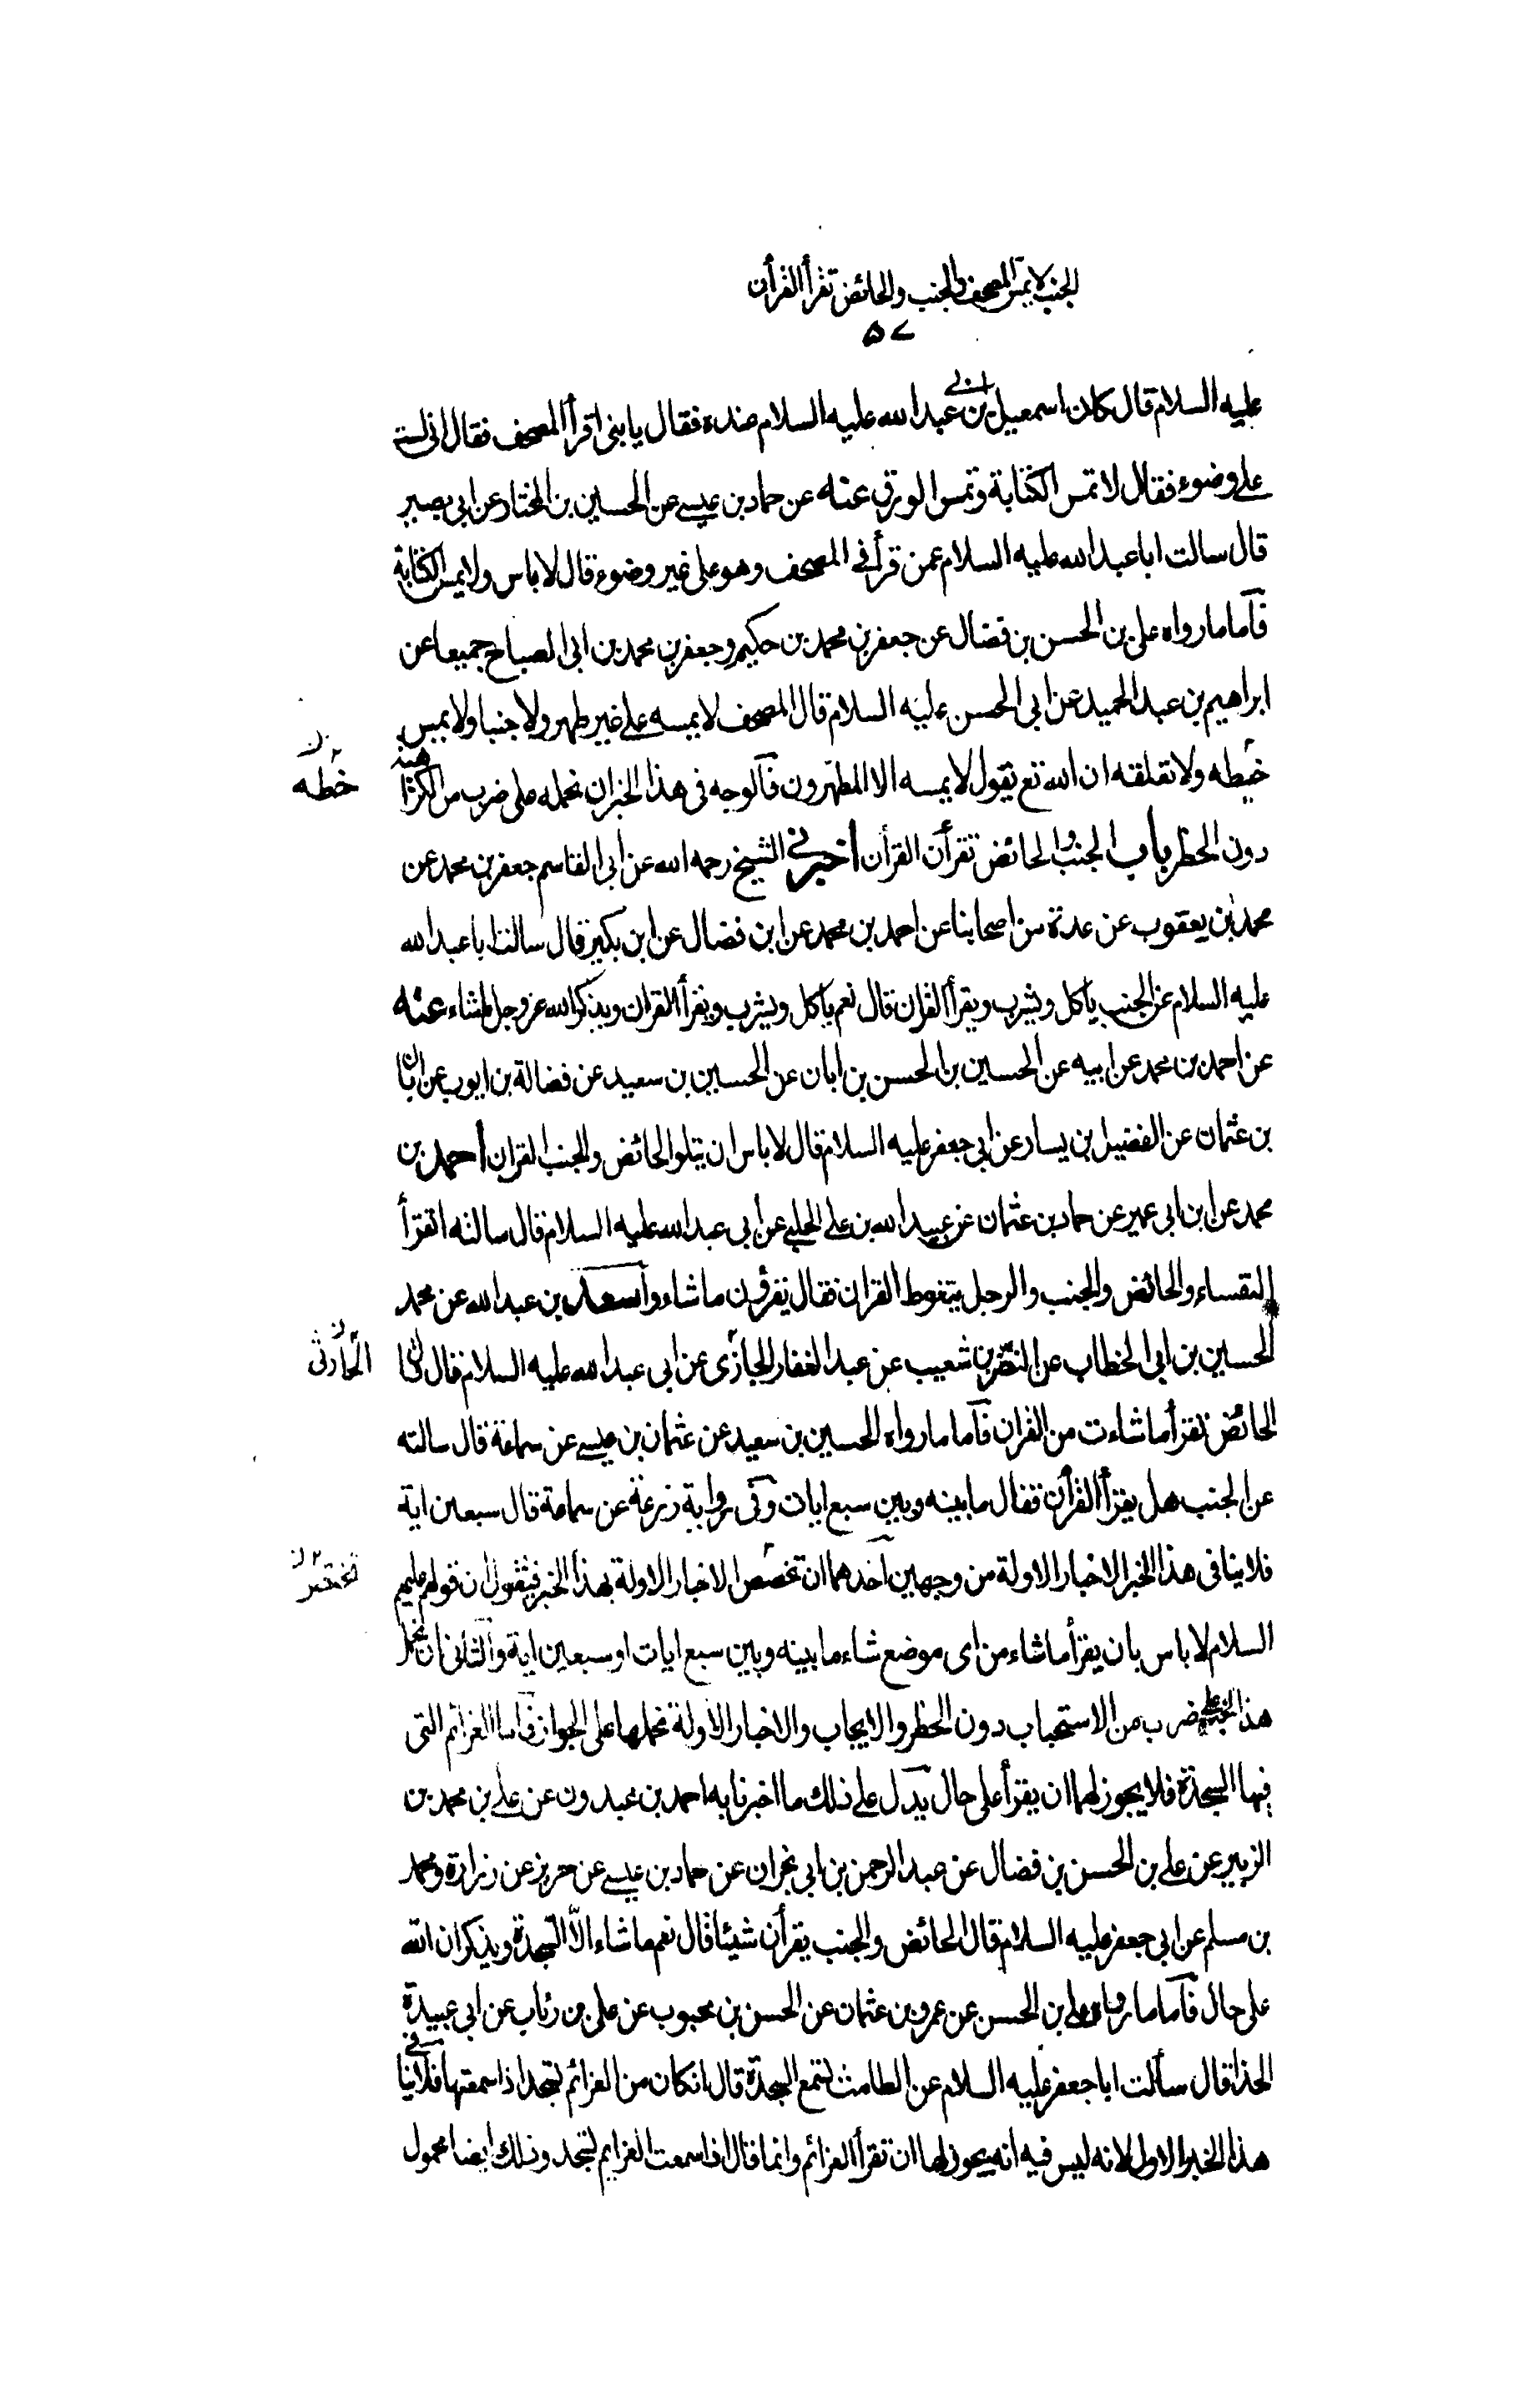 الجنب لا يمس المصحف والجنب والحائض تقرأ القرأن
٥٧
عليه السلام قال كان اسمعيل بن ابى عبدالله عليه السلام عنده فقال يا بنى اقرأ المصحف فقال انى لست
على وضوء فقال لا تمس الكتابة وتمس الورق عنه عن حماد بن عيسى عن الحسين بن المختار عن ابى بصير
قال سالت ابا عبدالله عليه السلام عمن قرأ فى المصحف وهو على غير وضوء قال لا باس ولا يمس الكتابة
فاما ما رواه على بن الحسن بن فضال عن جعفر بن محمد بن حكيم وجعفر بن محمد بن ابى الصباح جميعا عن
ابراهيم بن عبد الحميد عن ابى الحسن عليه السلام قال المصحف لا يمسه على غير طهر ولا جنبا ولا يمس
خيطه ولا تعلقه ان الله تع يقول لا يمسه الا المطهرون فالوجه فى هذا الخبر ان نحمله على ضرب من الكراهية
خطه
دون الحظر باب الجنب والحائض تقرأن القرأن أخبرنى الشيخ رحمه الله عن ابى القاسم جعفر بن محمد عن
محمد بن يعقوب عن عدة من اصحابنا عن احمد بن محمد عن ابن فضال عن ابن بكير قال سالت ابا عبدالله
عليه السلام عن الجنب ياكل ويشرب ويقرأ القران قال نعم ياكل ويشرب ويقرأ القران ويذكر الله عز وجل ما شاء عنه
عن احمد بن محمد عن ابيه عن الحسين بن الحسن بن ابان عن الحسين بن سعيد عن فضالة بن ايوب عن ابان
بن عثمان عن الفضيل بن يسار عن ابى جعفر عليه السلام قال لا باس ان يتلو الحائض والجنب القران أحمد بن
محمد عن ابن ابى عمير عن حماد بن عثمان عن عبيد الله بن على الحلبى عن ابى عبدالله عليه السلام قال سالته اتقرأ
النفساء والحائض والجنب والرجل يتغوط القران فقال يقرؤن ما شاءوا سعد بن عبدالله عن محمد
الحسين بن ابى الخطاب عن النضر بن شعيب عن عبد الغفار الجازى عن ابى عبدالله عليه السلام قال قال
الحارثى
الحائض تقرأ ما شاءت من القران فاما ما رواه الحسين بن سعيد عن عثمان بن عيسى عن سماعة قال سالته
عن الجنب هل يقرأ القرأن فقال ما بينه وبين سبع ايات وفى رواية زرعة عن سماعة قال سبعين اية
فلا ينافى هذا الخبر الاخبار الاولة من وجهين احدهما ان تخصص الاخبار الاولة بهذا الخبر فيقول ان قولهم عليهم
السلام لا باس بان يقرأ ما شاء من اى موضع شاء ما بينه وبين سبع ايات او سبعين اية والثانى ان نحمل
هذا الخبر على ضرب من الاستحباب دون الحظر والايجاب والاخبار الاولة نحملها على الجواز فاما العزائم التى
فيها السجدة فلا يجوز لهما ان يقرأ على حال يدل على ذلك ما اخبرنا به احمد بن عبدون عن على بن محمد بن
الزبير عن على بن الحسن بن فضال عن عبد الرحمن بن ابى نجران عن حماد بن عيسى عن حريز عن زرارة ومحمد
بن مسلم عن ابى جعفر عليه السلام قال الحائض والجنب يقرأن شيئا قال نعم ما شاء الّا السجدة ويذكران الله
على حال فاما ما رواه على بن الحسن عن عمرو بن عثمان عن الحسن بن محبوب عن على بن رئاب عن ابى عبيدة
الحذا قال سألت ابا جعفر عليه السلام عن الطامث تسمع السجدة قال ان كان من العزائم تسجد اذا سمعتها فلا ينافى
هذا الخبر الاول لانه ليس فيه انه يجوز لها ان تقرأ العزائم وانما قال اذا سمعت العزايم تسجد وذلك ايضا محمول